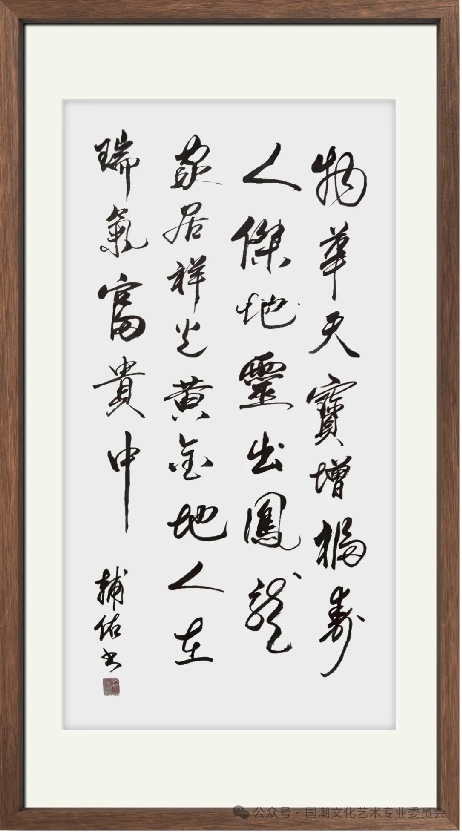 物華天寶增福壽
人傑地靈出鳳龍
家居祥光黄金地人在
瑞氣富貴中
輔佑书
公众号·国潮文化艺术专业委员会